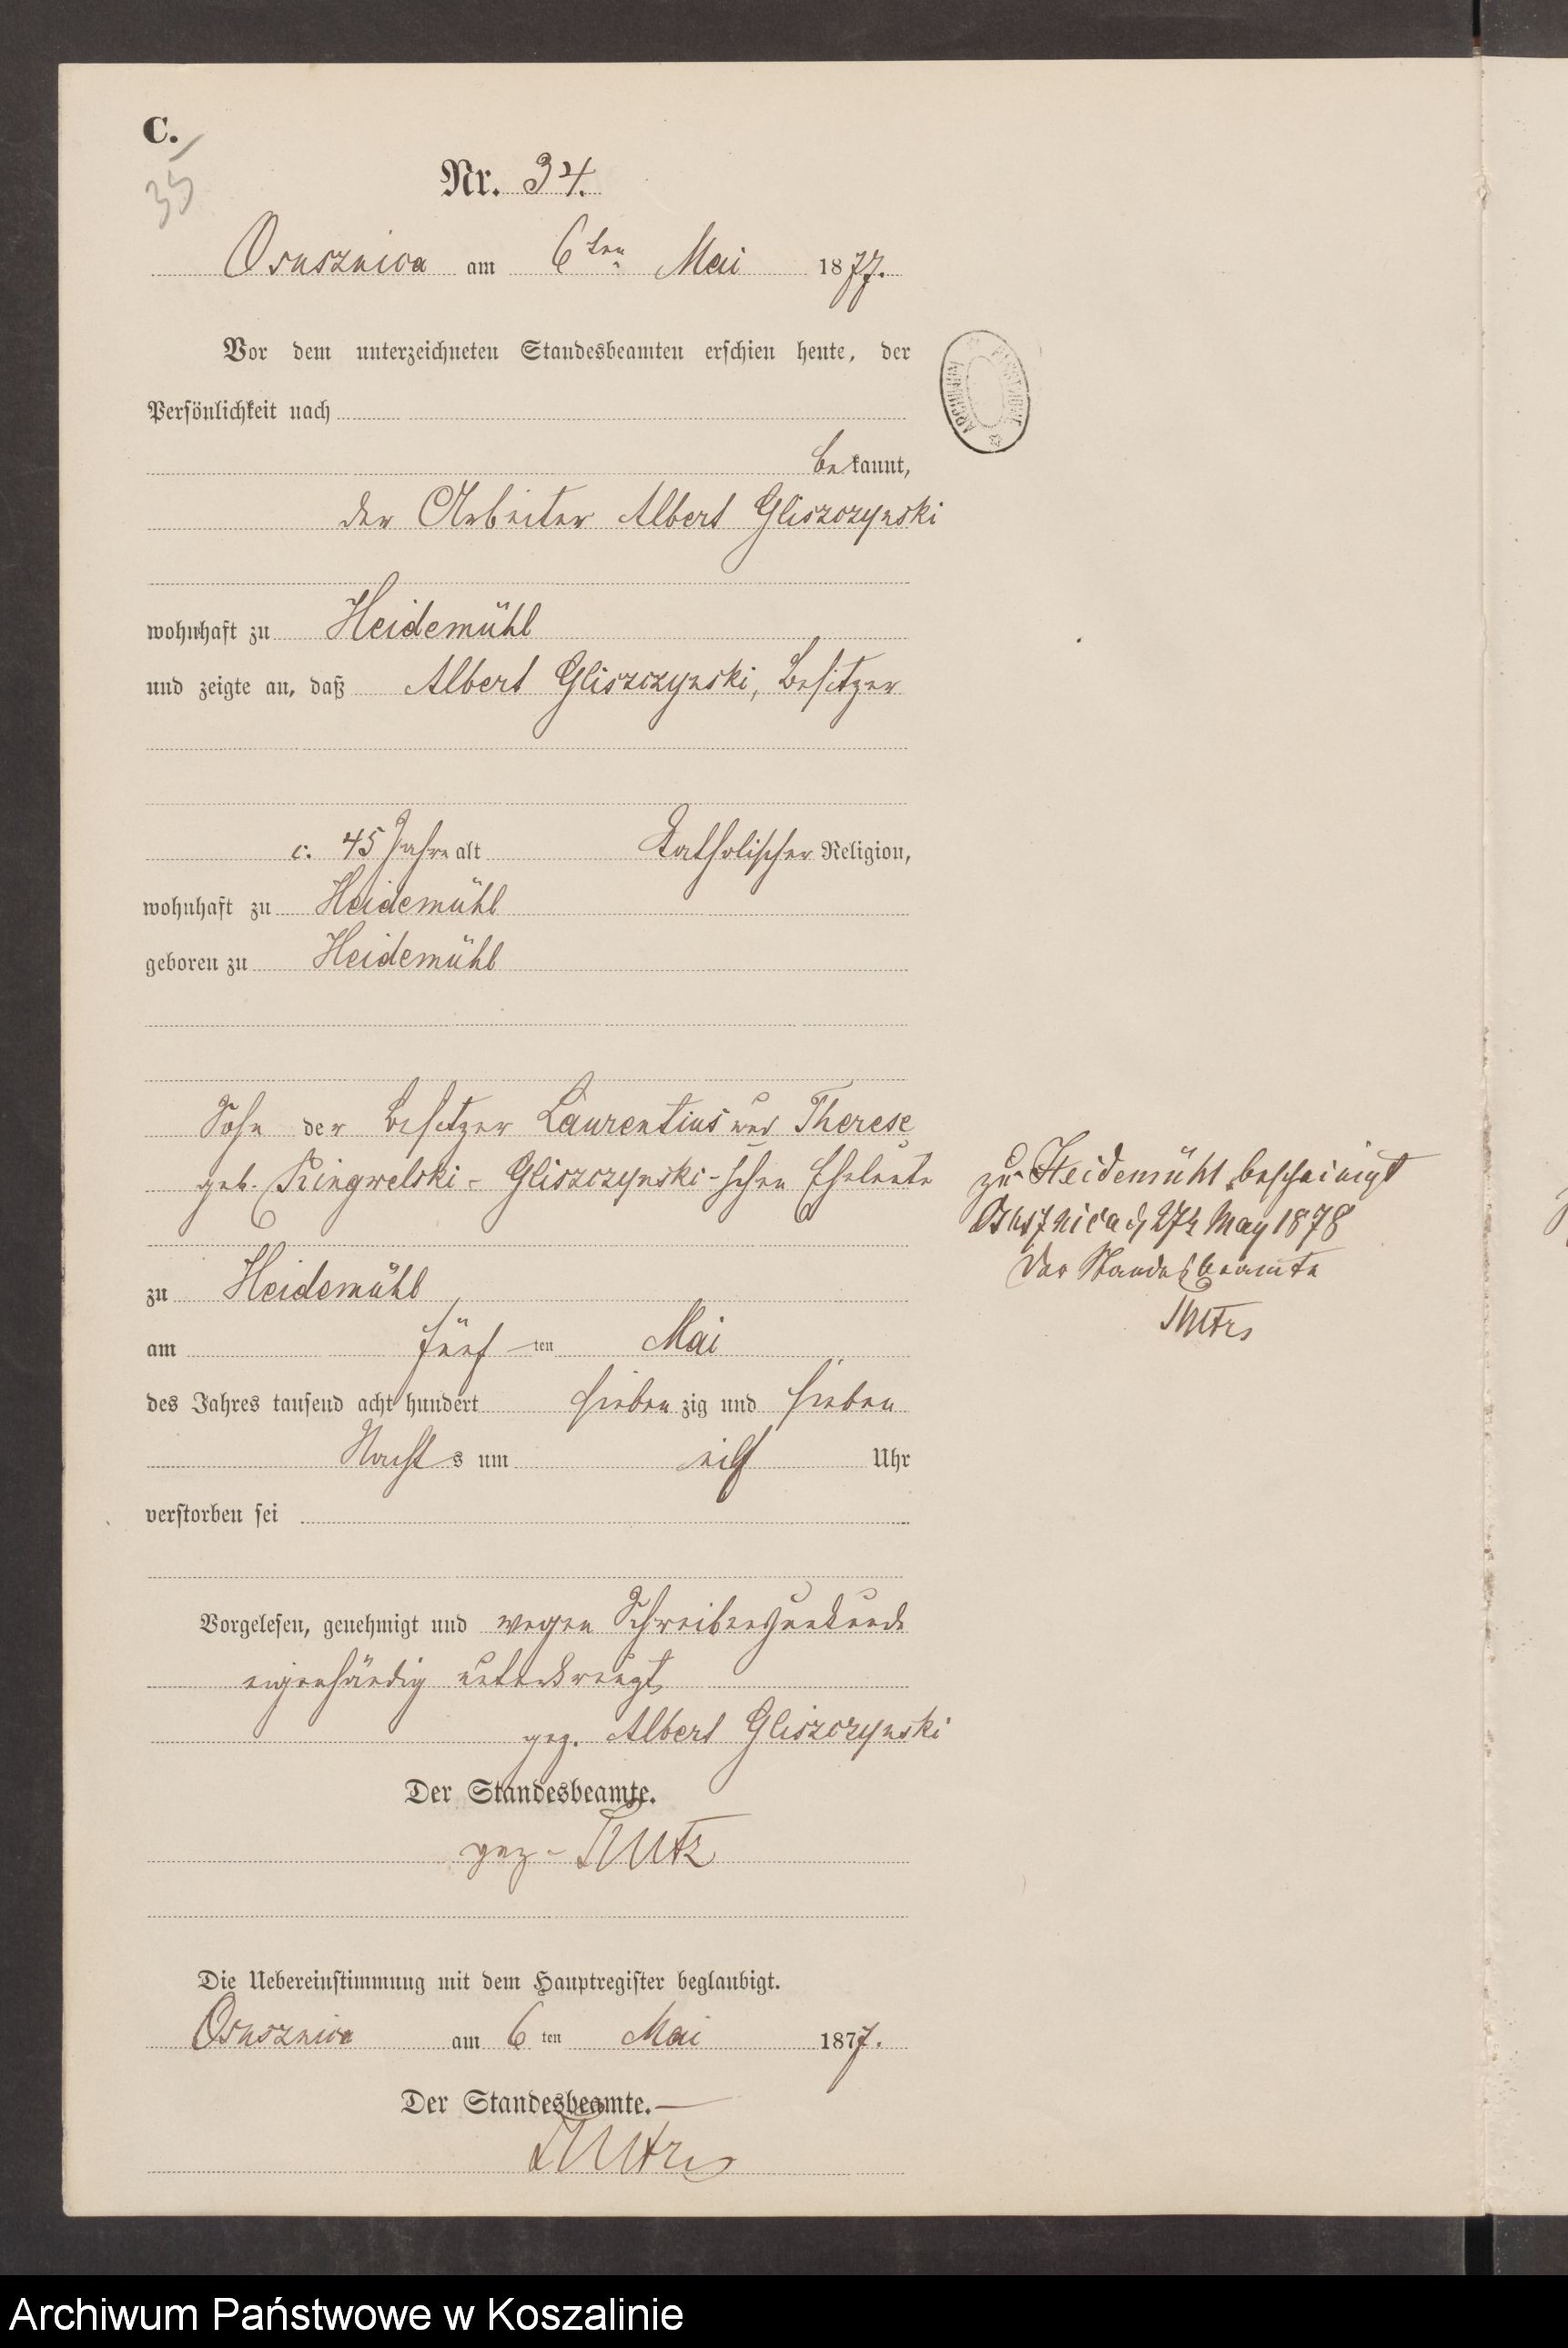 C.
35
Nr. 34.
Osusznica am 6ten Mai 1877.
Vor dem unterzeichneten Standesbeamten erschien heute, der
Persönlichkeit nach
bekannt,
der Arbeiter Albert Gliszczynski
wohnhaft zu Heidemühl
und zeigte an, daß Albert Gliszczynski, Besitzer
c. 45 Jahre alt katholischer Religion,
wohnhaft zu Heidemühl
geboren zu Heidemühl
Sohn der Besitzer Laurentius und Therese
geb. Kingwelski - Gliszczynski-schen Eheleute
zu Heidemühl bescheinigt
27t May 1878
Der Standesbeamte
zu Heidemühl
am fünf ten Mai
des Jahres tausend acht hundert sieben zig und sieben
Nacht s um eilf Uhr
verstorben sei
Vorgelesen, genehmigt und wegen Schreibensunkunde
eigenhändig unterkreuzt
gez. Albert Gliszczynski
Der Standesbeamte.
gez -
Die Uebereinstimmung mit dem Hauptregister beglaubigt.
Osusznica am 6 ten Mai 1877.
Der Standesbeamte.
Archiwum Państwowe w Koszalinie